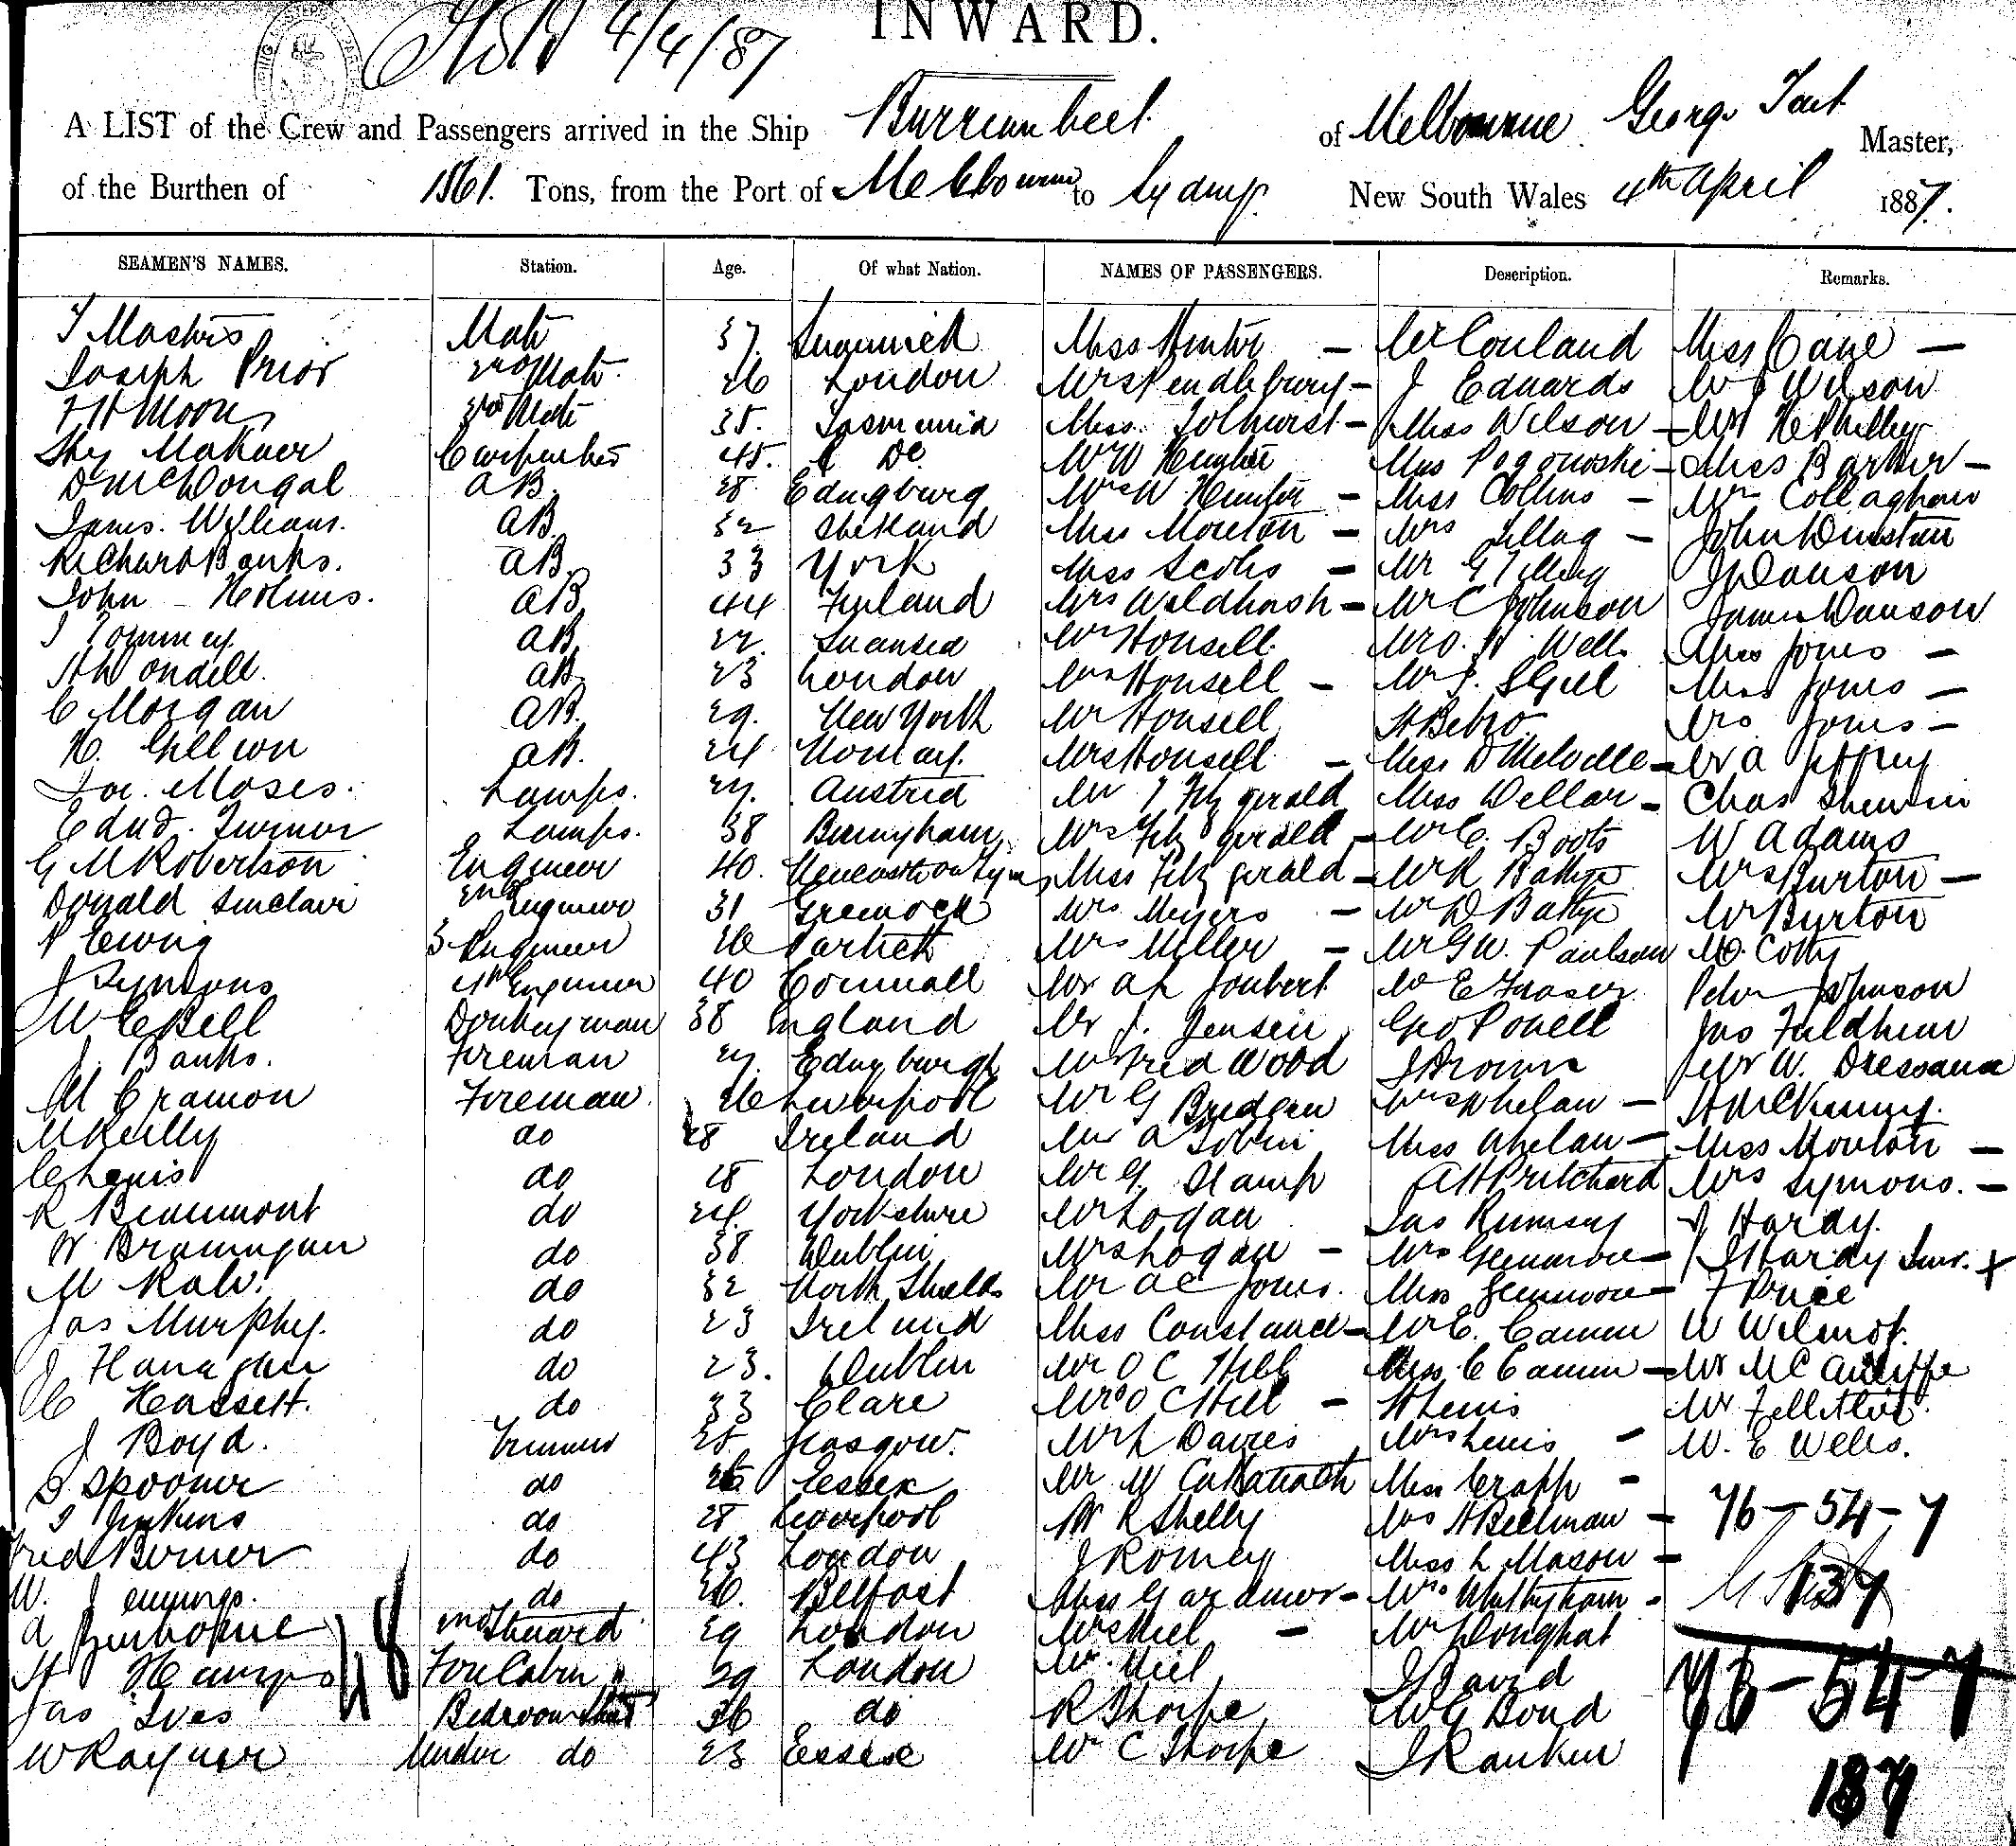 4/4/87
INWARD.
A LIST of the Crew and Passengers arrived in the Ship Burrumbeet of Melbourne George Tait Master,
of the Burthen of 1861. Tons, from the Port of Melbourne to Sydney. New South Wales 4th April 1887.
SEAMEN'S NAMES. Station. Age. Of what Nation. NAMES OF PASSENGERS. Description. Remarks.
Mate 37 Miss Hunter — Mr Couland Miss Cane —
Joseph Prior 2nd Mate 26 London Mrs Pendlebury — J Edwards Mr J Wilson
Moore 3rd Mate 35. Tasmania Miss Tolhurst — Miss Wilson —
Carpenter 45. Do Mr W Hunter Miss Pogonoski — Miss Barker —
D McDougal AB. 28 Edingburg Mrs W Hunter — Miss Collins — Mr Collaghan
James Williams. AB. 32 Shetland Miss Moreton — Mrs John Dunstan
Richard Banks. AB. 33 York Miss Scohs — Mr G J Dawson
John Holmes. AB 44 Finland Mrs — Mr C Johnson James Dawson
AB. 22. Swansea Mr Honsell. Mr O. H Wells Miss Jones —
AB. 23 London Mrs Honsell — Mr Miss Jones —
C Morgan AB. 29. New York Mr Honsell Mrs Jones —
AB. 24 Norway. Mrs Honsell — Miss D Melville — Mr A Jeffrey
Joe. Moses. Lamps. 27. Austria Mr J Fitzgerald Miss Dellar — Chas
Edwd. Turner Lamps. 38 Birmyham Mrs Fitzgerald — Mr C. Boots W Adams
G M Robertson Engineer 40. Newcastle on Tyne Miss Fitzgerald — Mr R Battye Mrs Burton —
Donald Sinclair 2nd Engineer 31 Greenock Mrs Meyers — Mr D Battye Mr Burton
Ewing 3 Engineer 26 Partick Mrs Miller — Mr G W. Paulson
J Symons 4th Engineer 40 Cornwall Mr A L Joubert Mr E Fraser Peter Johnson
W E Bell Donkeyman 38 England Mr J. Jensen Geo Powell Jas Feldheim
J. Banks. Fireman 27. Edingburgh Mr Fred Wood J Brown Mr W. Dressana
M Cramon Fireman. 26 Liverpool Mr G Bridgen Mrs Whelan — H McKenny.
M Reilly do 28 Ireland Mr A Tobin Miss Whelan — Miss Moulton —
C Lewis do 28 London Mr G. Stamp A H Pritchard Mrs Symons. —
R Beaumont do 24. Yorkshire Mr Logan Jas Rumsey J Hardy.
do 38 Dublin Mrs Logan — Mrs — J Hardy Junr. x
do 32 North Shields Mr A C Jones. Miss — F Price
Jas Murphy. do 23 Ireland Miss Constance — Mr E. Camm W Wilmot.
J Hanagan do 23. Dublin Mr O C Hill Miss C Camm — Mr McAuliffe
C Hassett. do 33 Clare Mrs O C Hill — H Lewis Mr
J Boyd. Trimmer 28 Glasgow. Mr L Davies Mrs Lewis — W. E Wells.
Spooner do 26 Essex Mr W Miss Crapp —
J Jenkins do 28 Liverpool R Shelly Mrs H Bellman — 76-54-7
Fred Berner do 43 London J Romey Miss L Mason —
W. Jennings. do 26. Belfast Miss Gardiner — Mrs — 137
2nd Steward. 29 London Mrs Niel — Mr
48 Fore Cabin 29 London Mr. Niel J David 76-54-7
Jas Ives Bedroom Stwd 36 do R Thorpe W G Bond
W Rayner Under do 23 Essex Mr C Thorpe J Rankin 137